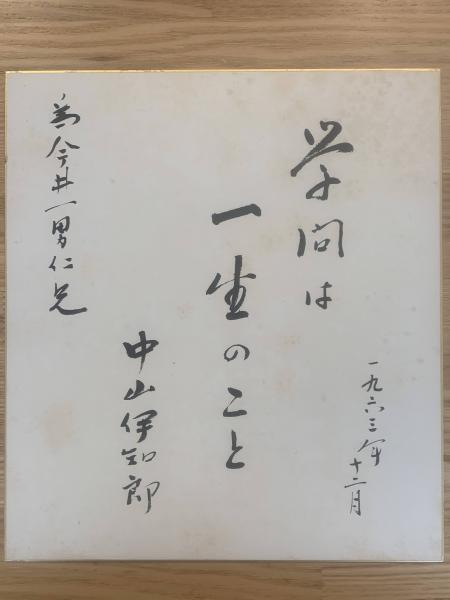 一九六三年
十二月
学問は
一生のこと
中山伊知郎
為今井一男仁兄